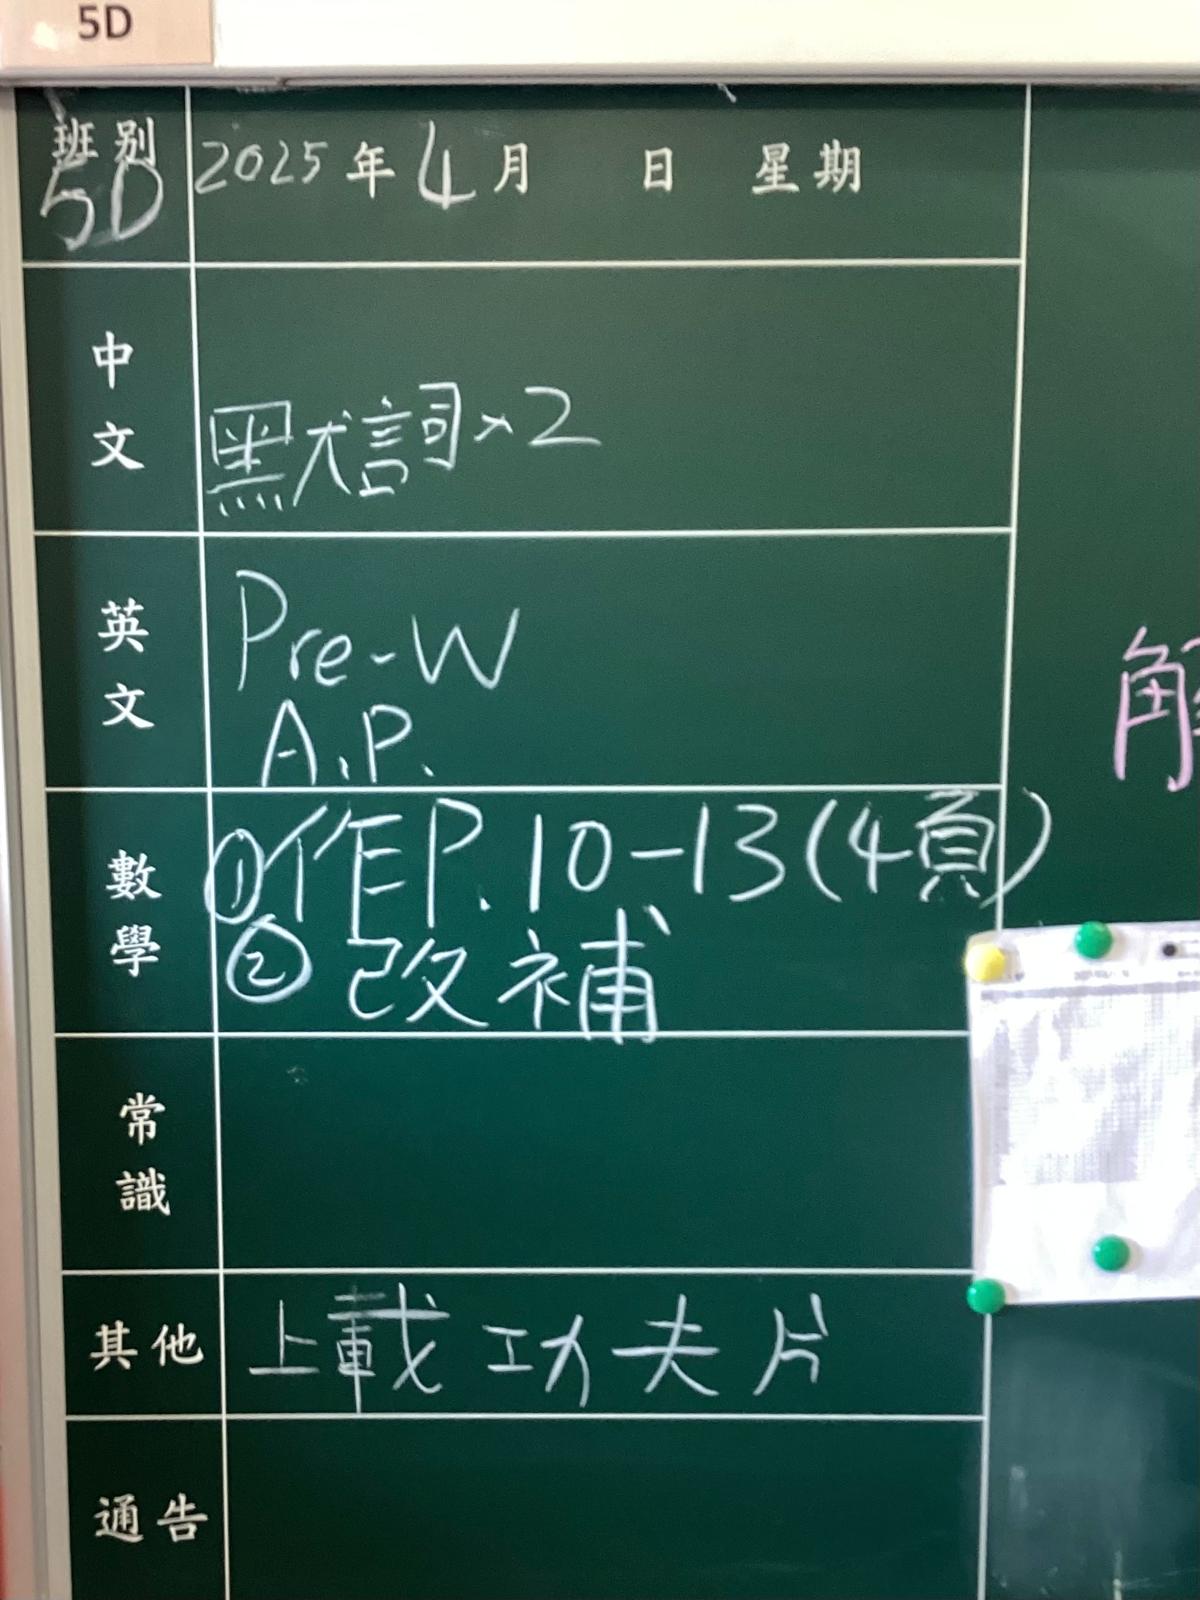 5D
班別 2025年4月 日 星期
5D
中文 默詞×2
英文 Pre-W
A.P.
數學 ①作P.10-13(4頁)
② 改補
常識
其他 上載功夫片
通告